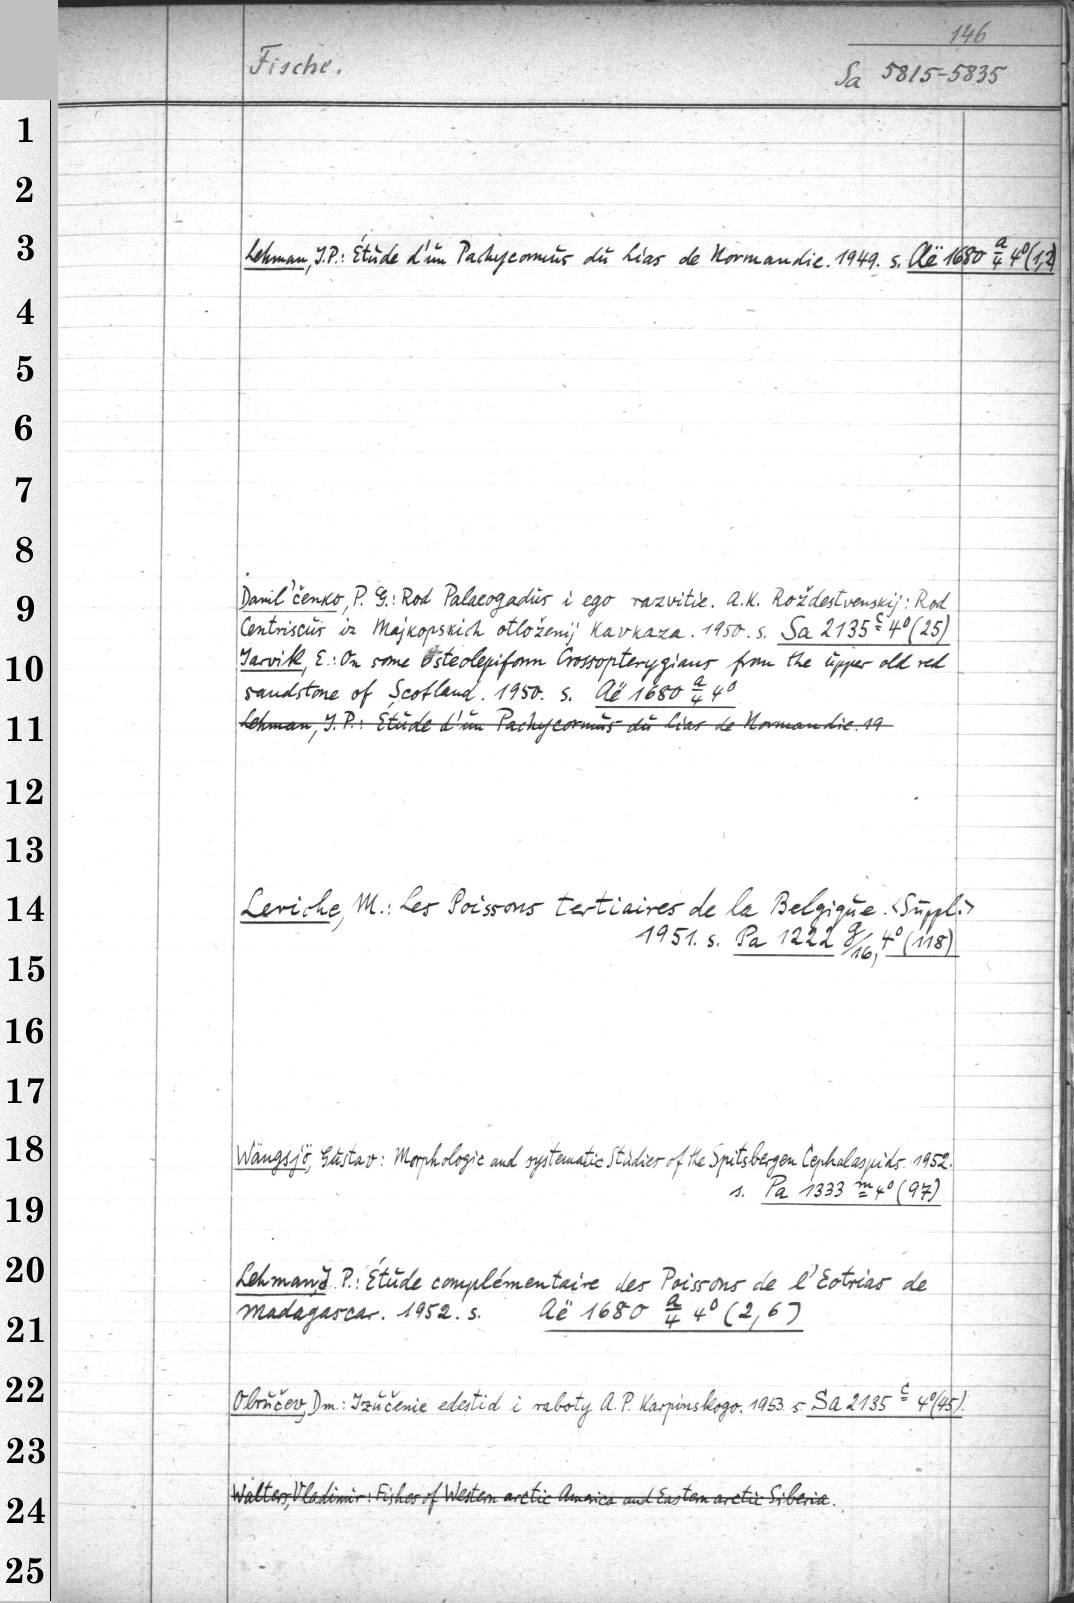 146
Fische.
Sa 5815-5835
1
2
3
Lehman, J.P.: Étude d'un Pachycormus du Lias de Normandie. 1949. s. Aë 1680 a/4 4° (1,2)
4
5
6
7
8
9
Danil'čenko, P. G.: Rod Palaeogadus i ego razvitie. A.K. Roždestvenskij: Rod
Centriscus iz Majkopskich otloženij Kavkaza. 1950. s. Sa 2135 c 4° (25)
10
Jarvik, E.: On some Osteolepiform Crossopterygians from the upper old red
sandstone of Scotland. 1950. s. Aë 1680 a/4 4°
11
Lehman, J.P.: Étude d'un Pachycormus du Lias de Normandie. 19
12
13
14
Leriche, M.: Les Poissons tertiaires de la Belgique. <Suppl.>
1951. s. Pa 1222 g/16, 4° (118)
15
16
17
18
Wängsjö, Gustav: Morphologic and systematic Studies of the Spitsbergen Cephalaspids. 1952.
s. Pa 1333 m 4° (97)
19
20
Lehman, J. P.: Étude complémentaire des Poissons de l'Eotrias de
Madagascar. 1952. s. Aë 1680 a/4 4° (2,6)
21
22
Obručev, Dm.: Izučenie edestid i raboty A. P. Karpinskogo. 1953 s. Sa 2135 c 4° (45).
23
24
Walters, Vladimir: Fishes of Western arctic America and Eastern arctic Siberia.
25